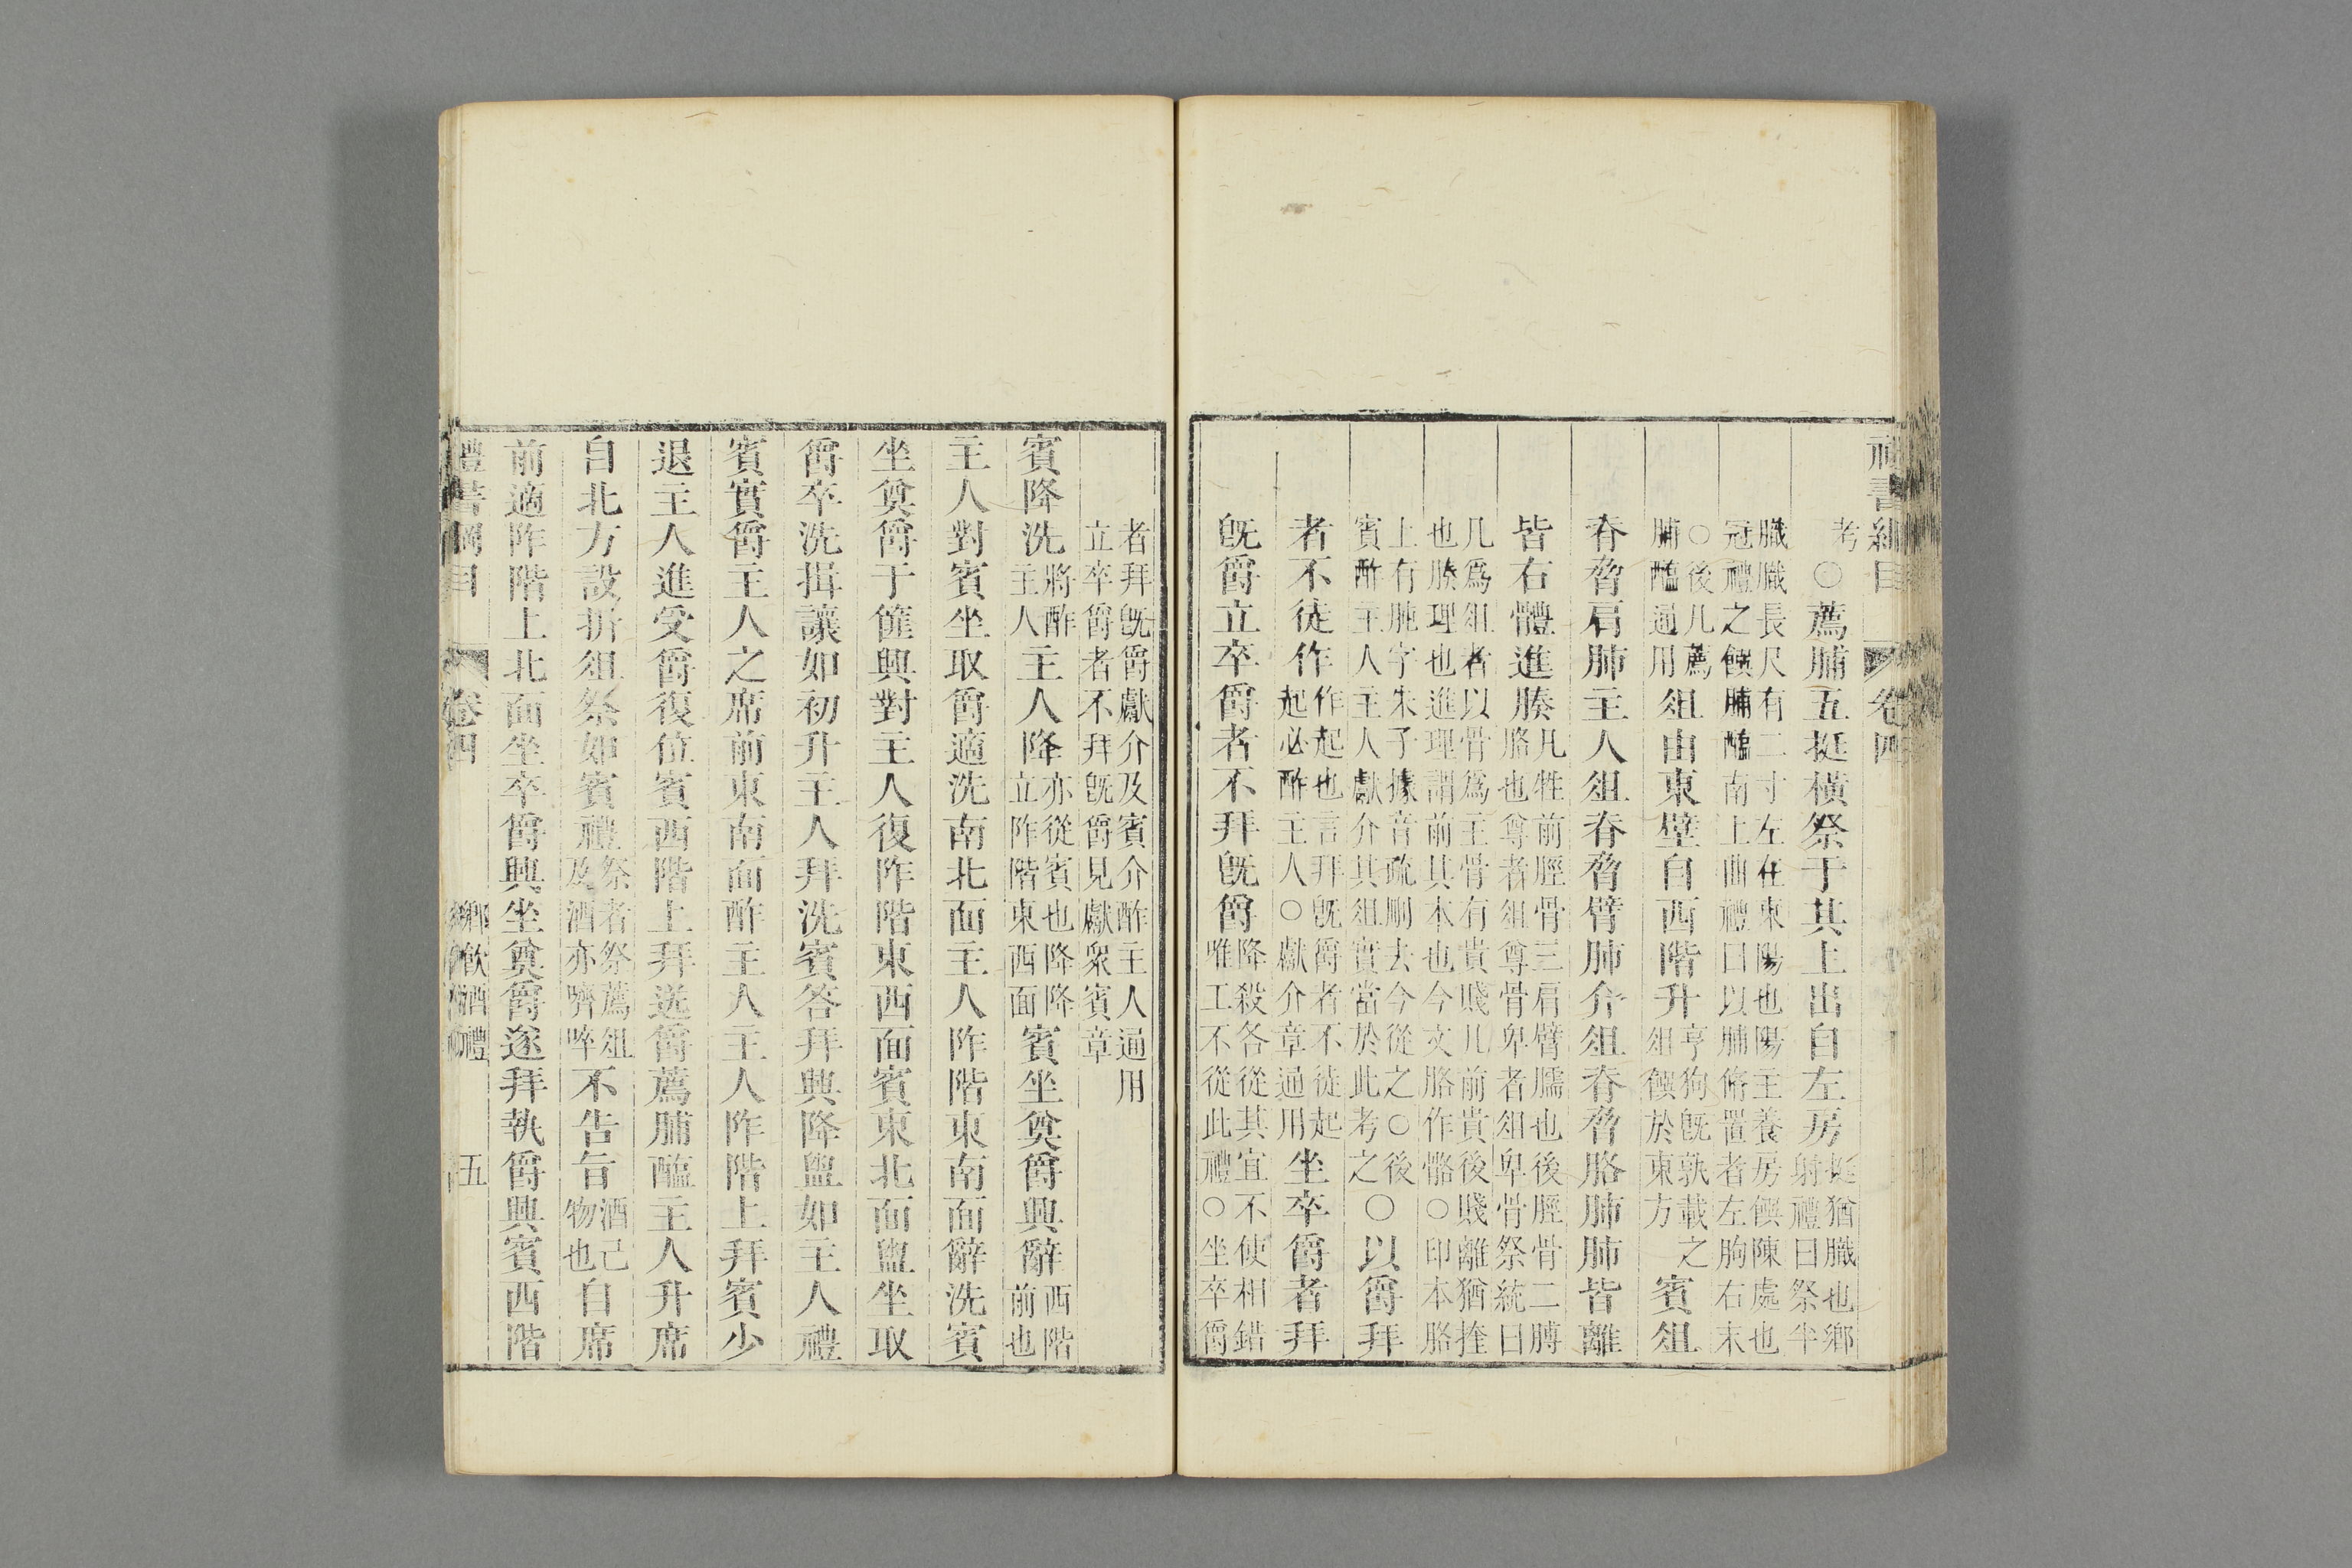 書綱目　卷四
考○薦脯五挺橫祭于其上出自左房挺猶膱也鄉射禮曰祭半
膱膱長尺有二寸左在東陽也陽主養房饌陳處也冠禮之饌脯醢南上曲禮曰以脯脩置者左朐右末
○後凡薦脯醢通用俎由東壁自西階升亨狗旣孰載之俎饌於東方賓俎
脊脅肩肺主人俎脊脅臂肺介俎脊脅胳肺肺皆離
皆右體進腠凡牲前脛骨三肩臂臑也後脛骨二膊胳也尊者俎尊骨卑者俎卑骨祭統曰
凡爲俎者以骨爲主骨有貴賤凡前貴後賤離猶㨒也腠理也進理謂前其本也今文胳作骼○印本胳
上有肫字朱子據音疏刪去今從之○後賓酢主人主人獻介其俎實當於此考之○以爵拜
者不徒作作起也言拜旣爵者不徒起起必酢主人○獻介章通用坐卒爵者拜
旣爵立卒爵者不拜旣爵降殺各從其宜不使相錯唯工不從此禮○坐卒爵
者拜旣爵獻介及賓介酢主人通用立卒爵者不拜旣爵見獻衆賓章
賓降洗將酢主人主人降亦從賓也降降立阼階東西面賓坐奠爵興辭西階前也
主人對賓坐取爵適洗南北面主人阼階東南面辭洗賓
坐奠爵于篚興對主人復阼階東西面賓東北面盥坐取
爵卒洗揖讓如初升主人拜洗賓答拜興降盥如主人禮
賓實爵主人之席前東南面酢主人主人阼階上拜賓少
退主人進受爵復位賓西階上拜送爵薦脯醢主人升席
自北方設折俎祭如賓禮祭者祭薦俎及酒亦嚌啐不告旨酒己物也自席
前適阼階上北面坐卒爵興坐奠爵遂拜執爵興賓西階
禮書綱目　卷四　鄉飲酒禮　五